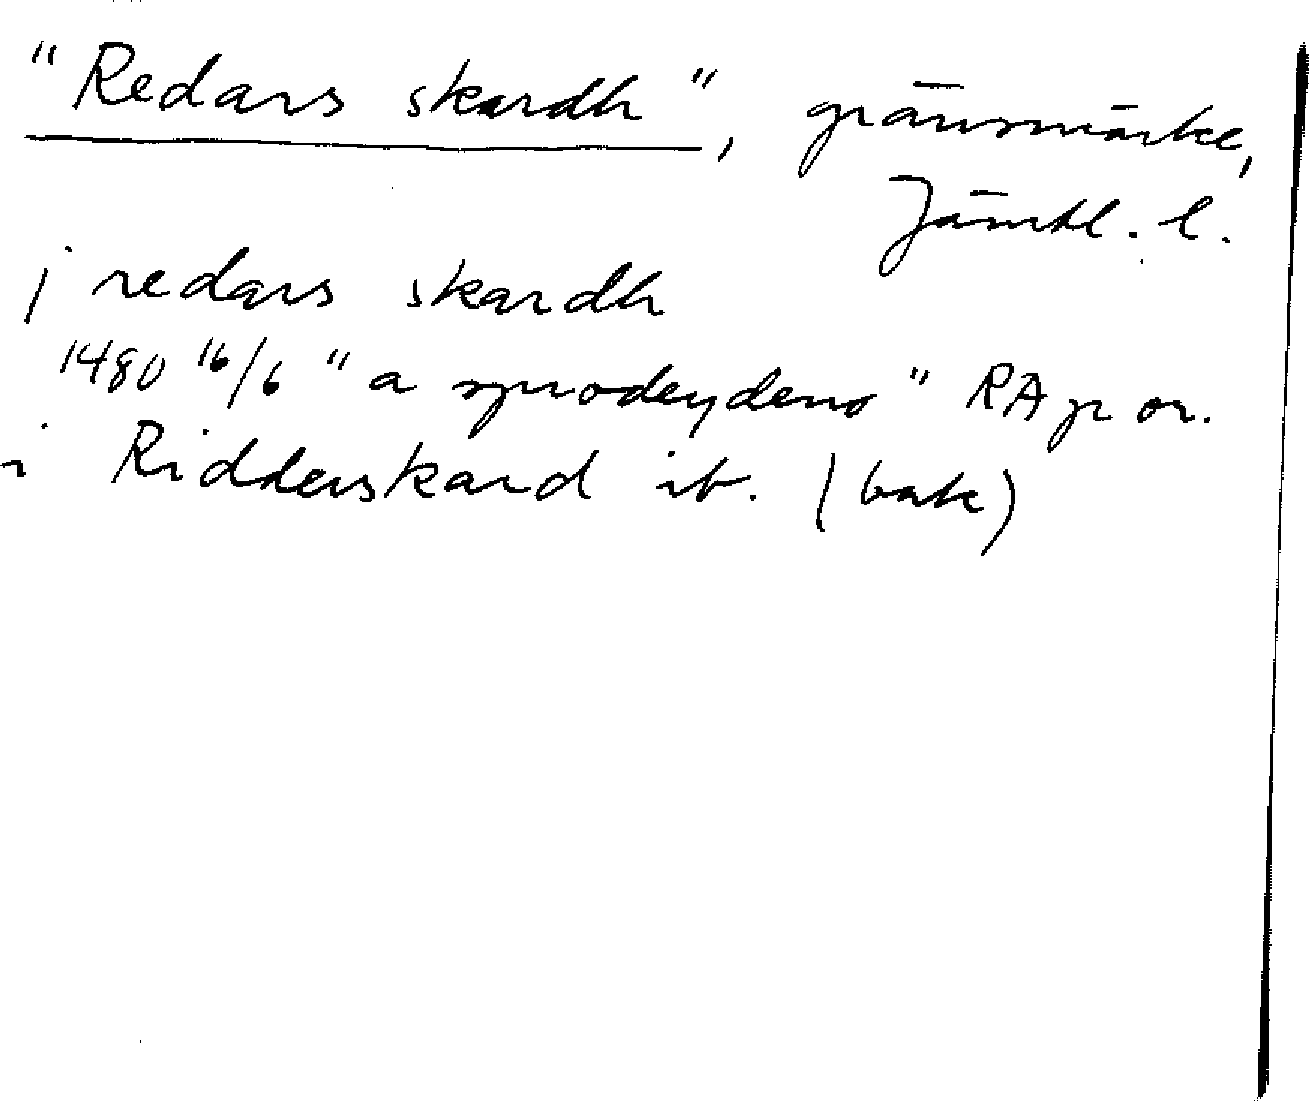 "Redars skardh", gränsmärke,
Jämtl. l.
j redars skardh
1480 16/6 "a sprodeydeno" RAp or.
i Ridderskard ib. (bak)